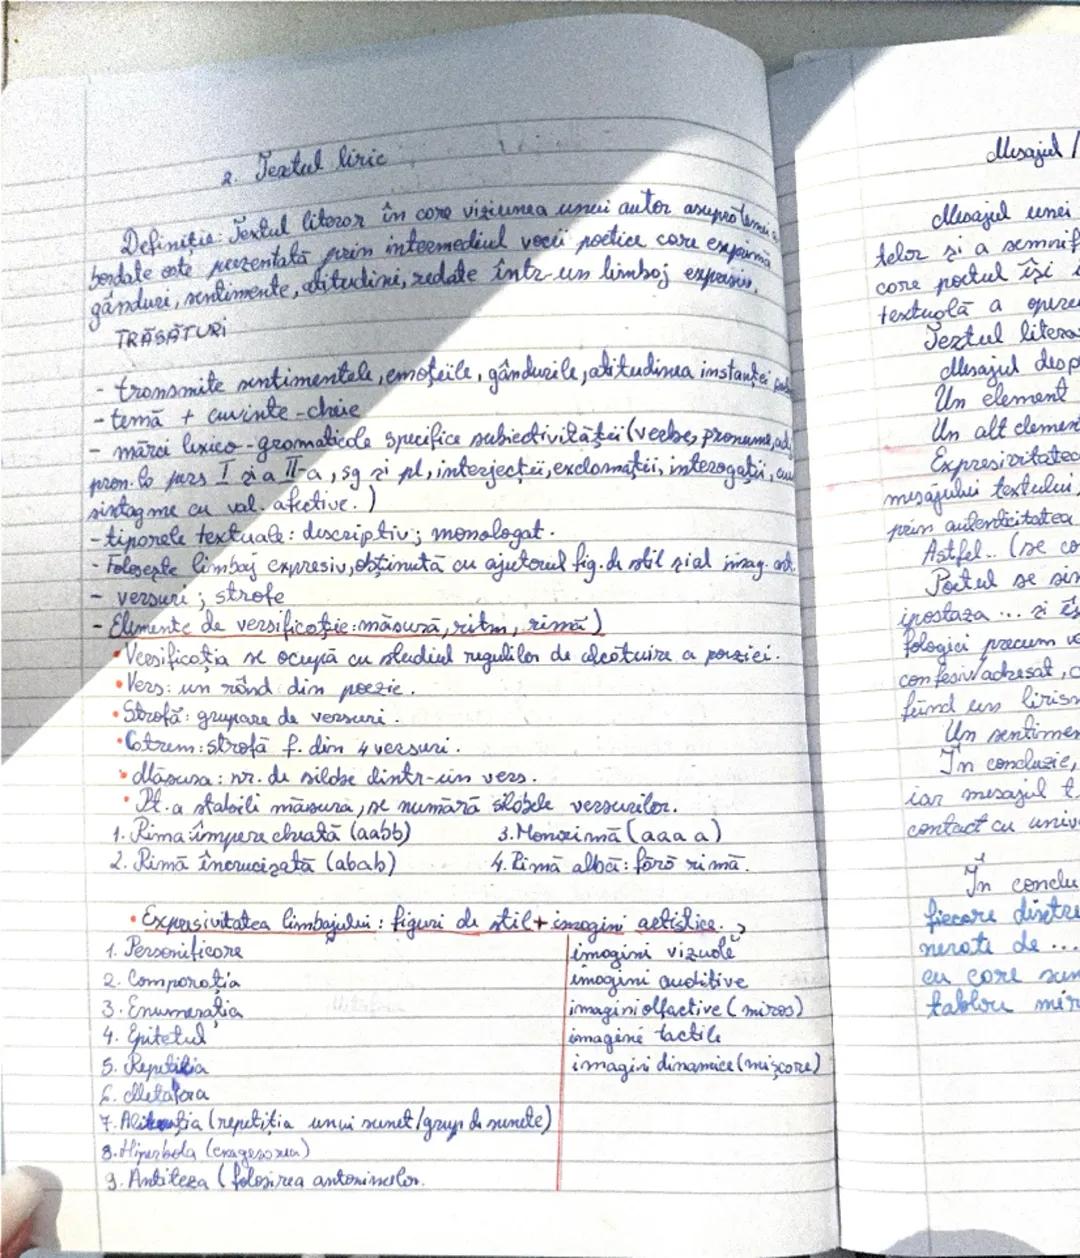 2. Textul liric
Definiție: Textul literar în care viziunea unui autor asupra temei a-
bordate este prezentată prin intermediul vocii poetice care exprimă
gânduri, sentimente, atitudini, redate într-un limbaj expresiv.
TRĂSĂTURI
- transmite sentimentele, emoțiile, gândurile, atitudinea instanței
- temă + cuvinte-cheie
- mărci lexico-gramaticale specifice subiectivității (verbe, pronume, adj.
pron. la pers I și a II-a, sg și pl, interjecții, exclamații, interogații,
sintagme cu val. afective.)
- tiparele textuale: descriptiv; monologat.
- Folosește limbaj expresiv, obținută cu ajutorul fig. de stil și al imag. art.
- versuri; strofe
- Elemente de versificație: măsură, ritm, rimă)
• Versificația se ocupă cu studiul regulilor de alcătuire a poeziei.
• Vers: un rând din poezie.
• Strofă: grupare de versuri.
• Catren: strofă f. din 4 versuri.
• Măsura: nr. de silabe dintr-un vers.
• Pt. a stabili măsura, se numără silabele versurilor.
1. Rima împerecheată (aabb) 3. Monorimă (aaaa)
2. Rimă încrucișată (abab) 4. Rimă albă: fără rimă.
• Expresivitatea limbajului: figuri de stil + imagini artistice.
1. Personificare imagini vizuale
2. Comparația imagini auditive
3. Enumerația imagini olfactive (miros)
4. Epitetul imagini tactile
5. Repetiția imagini dinamice (mișcare)
6. Metafora
7. Aliterația (repetiția unui sunet/grup de sunete)
8. Hiperbola (exagerarea)
9. Antiteza (folosirea antonimelor.
Mesajul /
Mesajul unei
telor și a semnif
care poetul își
textuală a operei
Textul litera
Mesajul desp
Un element
Un alt elemen
Expresivitatea
mesajului textului,
prin autenticitatea
Astfel.. (se co
Poetul se sim
ipostaza ... și
fologici precum ve
confesiv/adresat, c
fiind un lirism
Un sentimen
În concluzie,
iar mesajul t.
contact cu unive
În conclu
fiecare dintre
nerate de ...
cu care sun
tablou mir